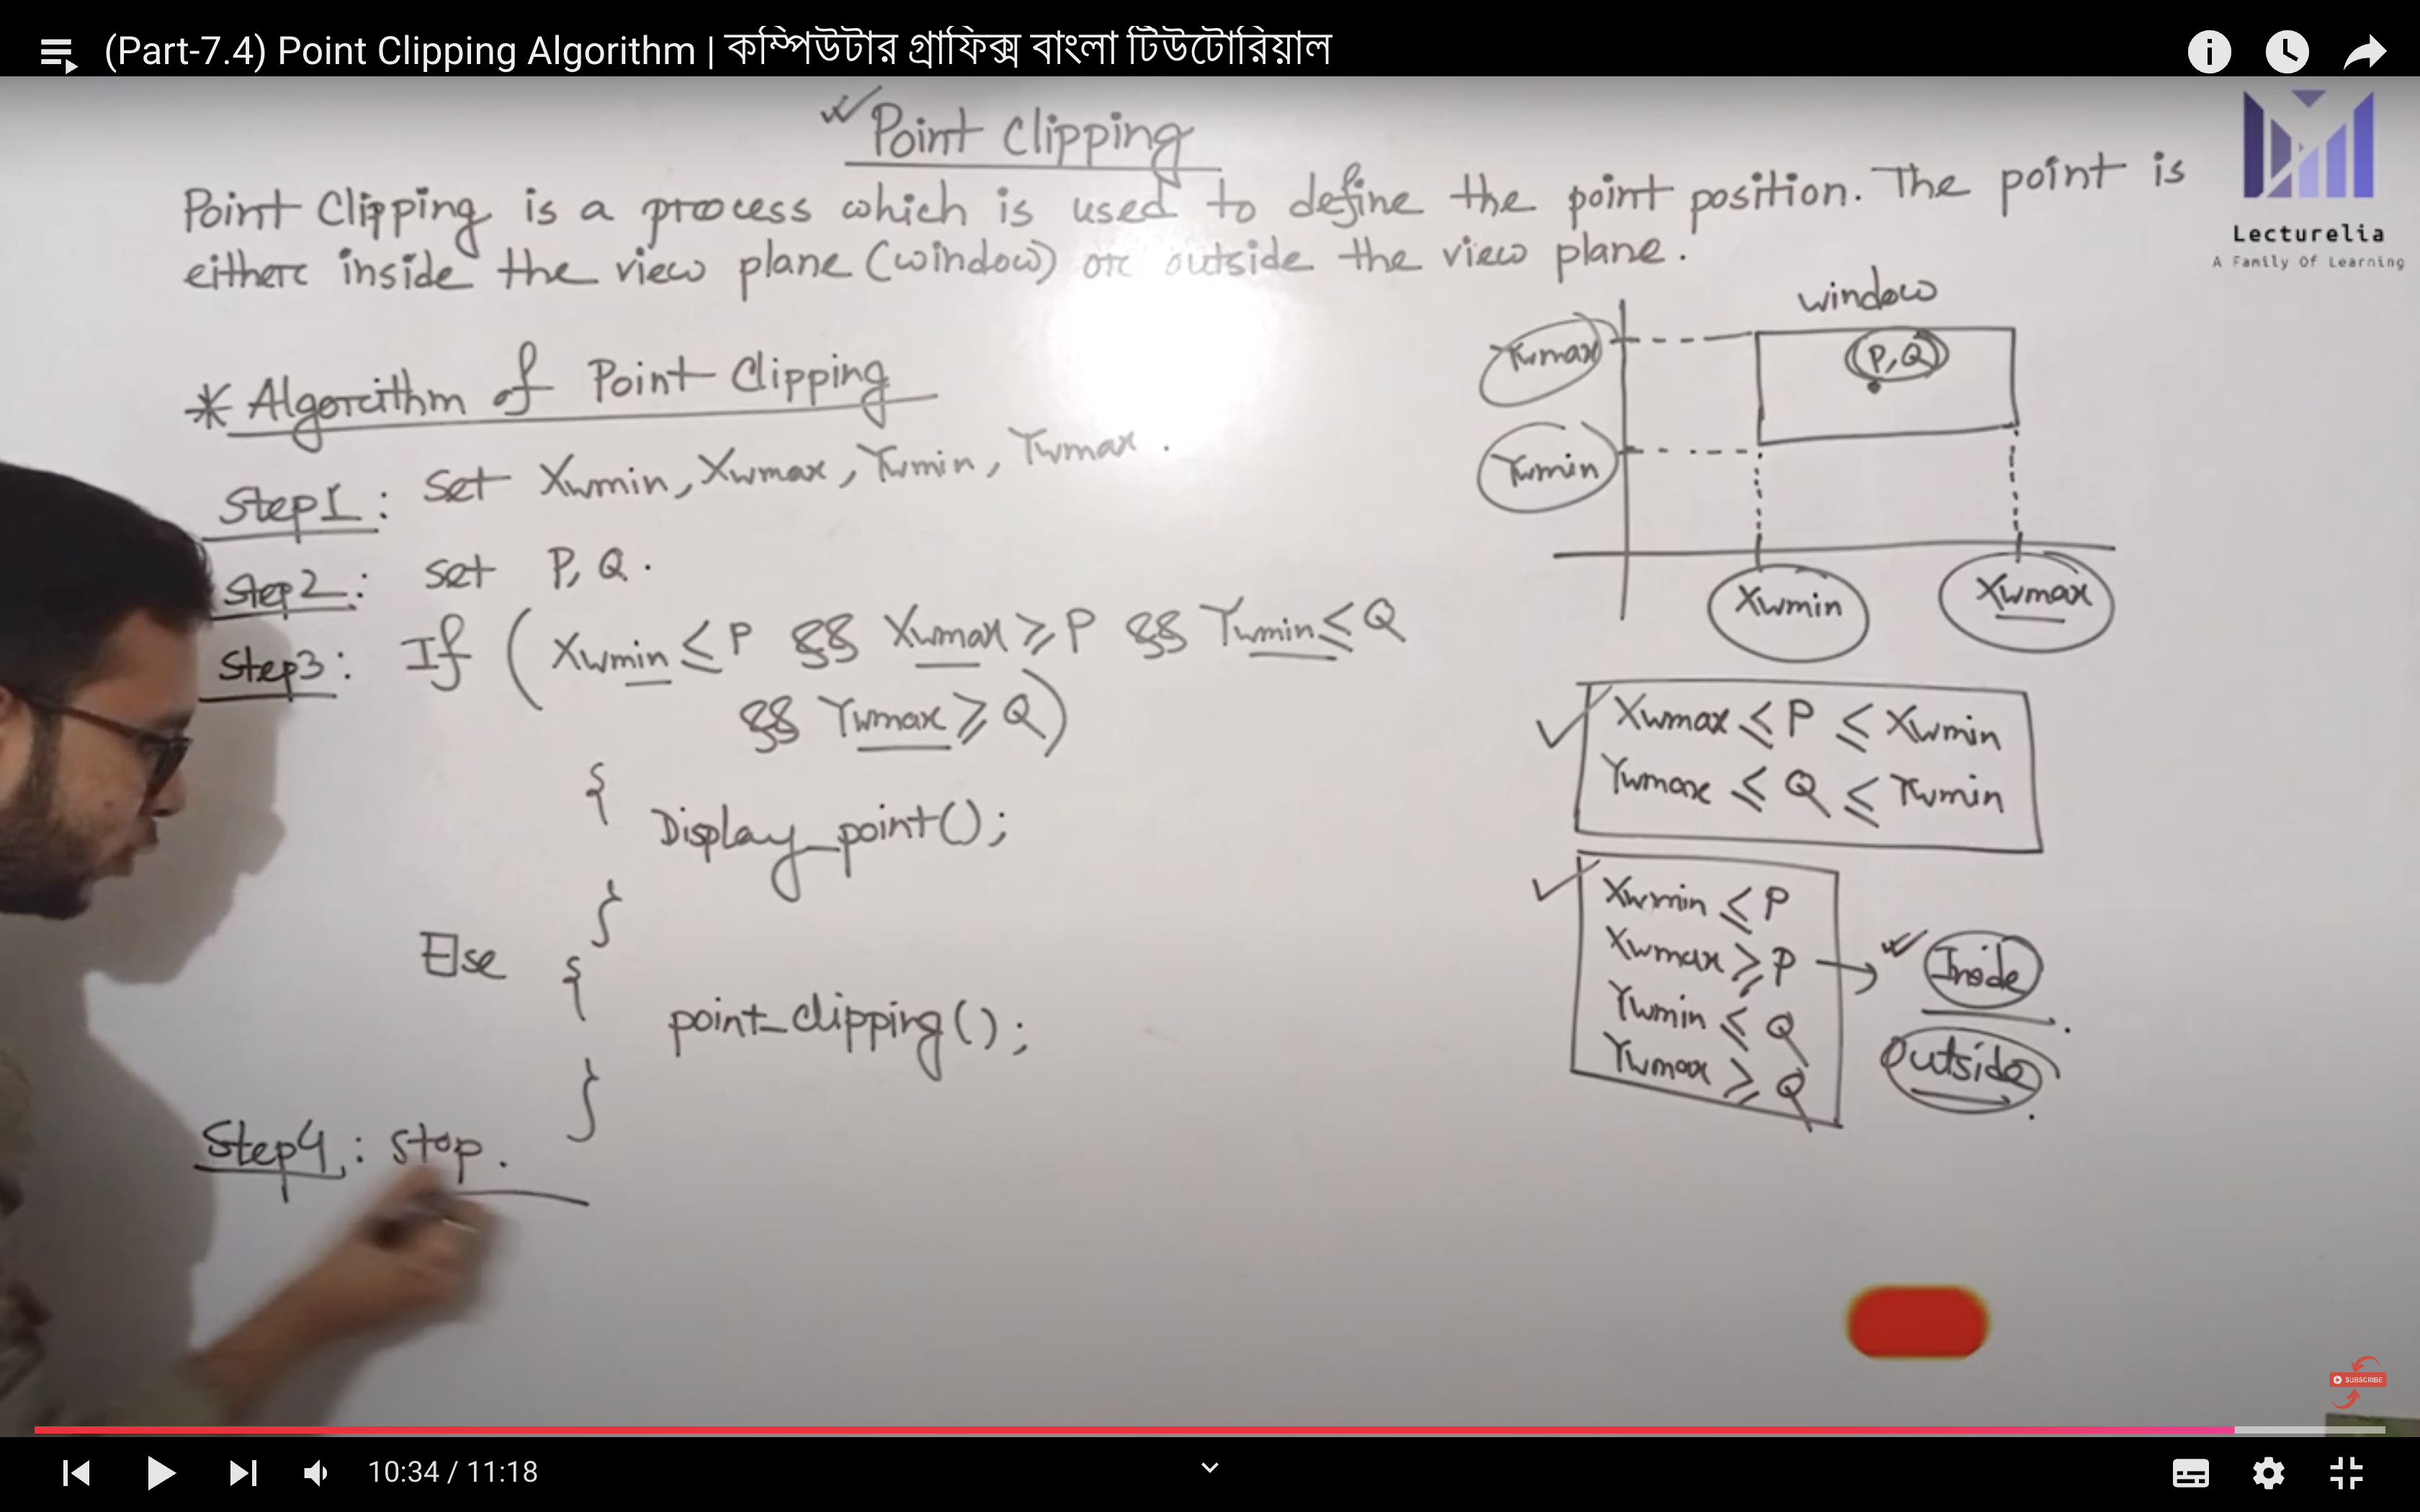 (Part-7.4) Point Clipping Algorithm | কম্পিউটার গ্রাফিক্স বাংলা টিউটোরিয়াল
Point Clipping
Point Clipping is a process which is used to define the point position. The point is
either inside the view plane (window) or outside the view plane.
Lecturelia
A Family Of Learning
* Algorithm of Point Clipping
Step1: Set Xwmin, Xwmax, Ywmin, Ywmax.
Step2: Set P, Q.
Step3: If (Xwmin ≤ P && Xwmax ≥ P && Ywmin ≤ Q
&& Ywmax ≥ Q)
{
Display_point();
}
Else {
point_clipping();
}
Step4: Stop.
window
Ywmax
P,Q
Ywmin
Xwmin
Xwmax
Xwmax ≤ P ≤ Xwmin
Ywmax ≤ Q ≤ Ywmin
Xwmin ≤ P
Xwmax ≥ P → Inside
Ywmin ≤ Q
Ywmax ≥ Q
Outside.
SUBSCRIBE
10:34 / 11:18